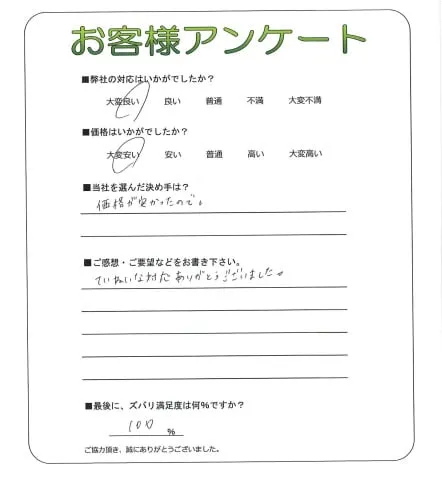 お客様アンケート
■弊社の対応はいかがでしたか？
大変良い 良い 普通 不満 大変不満
■価格はいかがでしたか？
大変安い 安い 普通 高い 大変高い
■当社を選んだ決め手は？
価格が安かったので。
■ご感想・ご要望などをお書き下さい。
ていねいな対応ありがとうございました。
■最後に、ズバリ満足度は何％ですか？
100 ％
ご協力頂き、誠にありがとうございました。